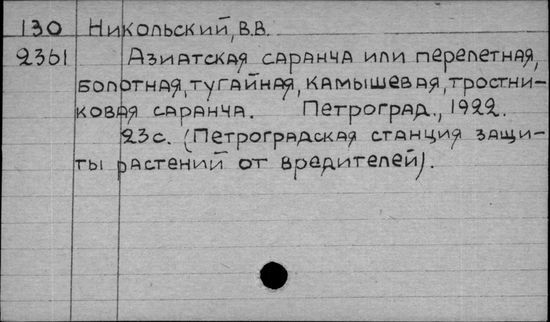 130 Никольский, В.В.
2361 Азиатская саранча или перелетная,
болотная, тугайная, камышевая, тростни-
ковая саранча. Петроград., 1922.
23с. (Петроградская станция защи-
ты растений от вредителей).